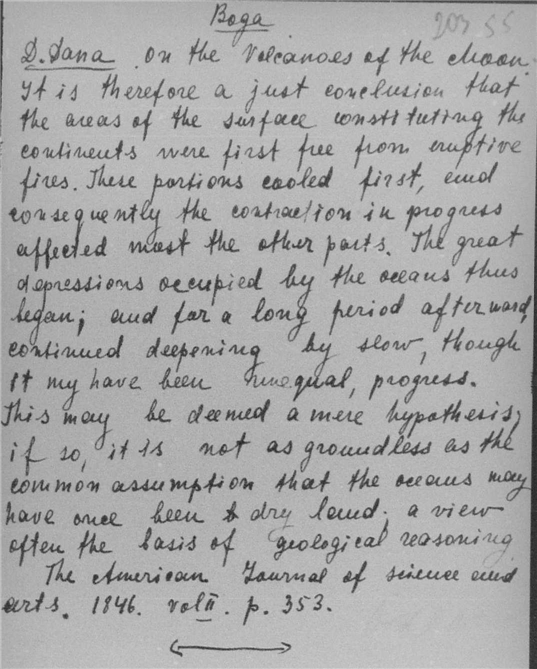 Вода
203 55
D. Dana on the Volcanoes of the Moon.
It is therefore a just conclusion that
the areas of the surface constituting the
continents were first free from eruptive
fires. These portions cooled first, and
consequently the contraction in progress
affected most the other parts. The great
depressions occupied by the oceans thus
began; and for a long period afterward,
continued deepening by slow, though
it my have been unequal, progress.
This may be deemed a mere hypothesis;
if so, it is not as groundless as the
common assumption that the oceans may
have once been dry land; a view
often the basis of geological reasoning.
The American Journal of science and
arts. 1846. vol II. p. 353.